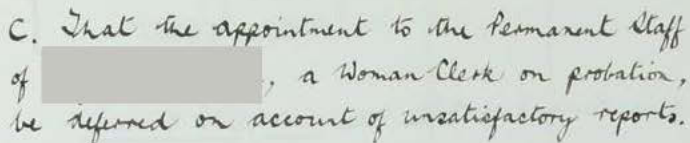 C. That the appointment to the Permanent Staff
of , a Woman Clerk on probation,
be deferred on account of unsatisfactory reports.